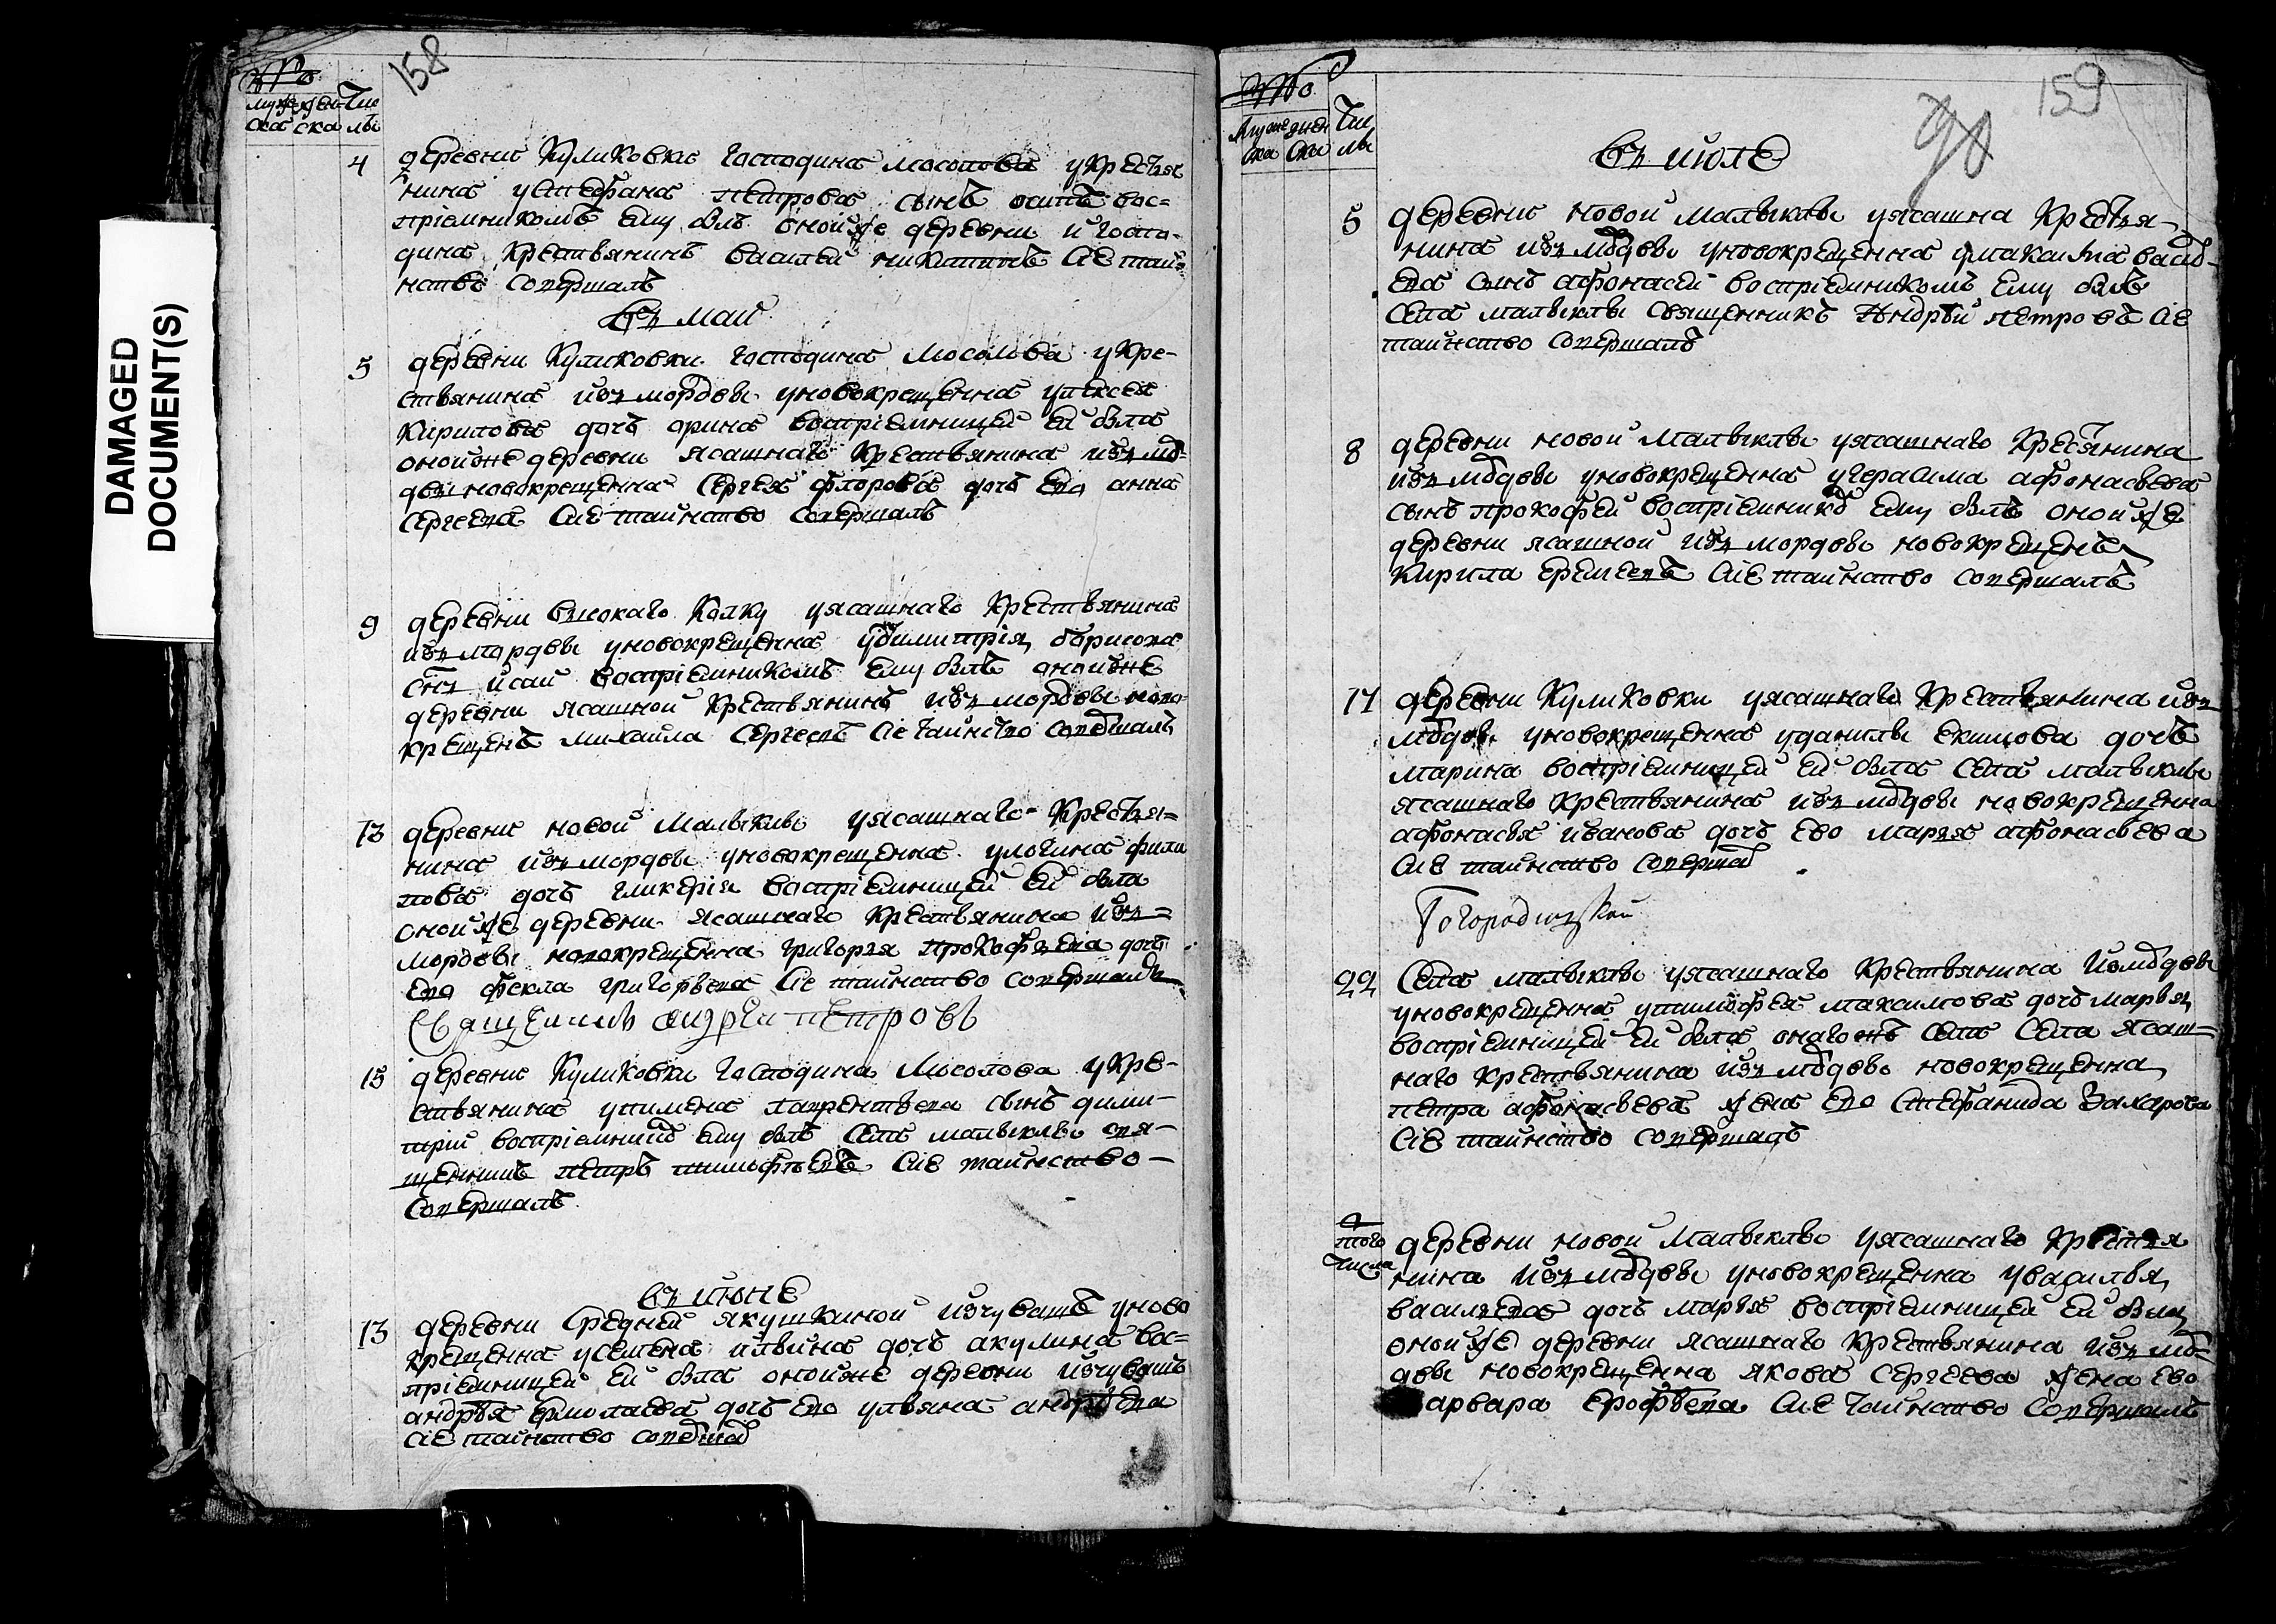 DAMAGED
DOCUMENT(S)
158
Число
муже жен Чис
ска ска лы
4 деревни Куликовки господина мосолова у крестья
нина устефана петрова сынъ осипъ вос=
пріемникомъ ему былъ оной же деревни и госпо-
дина крестьянинъ василей никитинъ сіе таи-
нство совершалъ
въ маи
5 деревни Куликовки господина Мосолова у кре-
стьянина изъ мордвы у новокрещенна уалексея
Кирилова дочь орина воспріемницей ей была
оной же деревни ясашнаго крестьянина изъ мо-
двы новокрещенна Сергея флорова дочь ево анна
Сергеева сіе таинство совершалъ
9 деревни высокаго Колку уясашнаго крестьянина
изъ мордвы уновокрещенна удимитрія борисова
снъ исаи воспріемникомъ ему былъ оной же
деревни ясашной крестьянинъ изъ мордвы ново
крещенъ михаила Сергеевъ сіе таинство совершалъ
13 деревни новой Малыклы уясашнаго крестья=
нина изъ мордвы уновокрещенна улогина фили
пова дочь гликерія воспріемницей ей была
оной же деревни ясашнаго крестьянина изъ
мордвы новокрещенна григорья прокофьева дочь
ево фекла григорьева сіе таинство совершалъ
Священникъ андрей петровъ
15 деревни Куликовки господина Мосолова укре-
стьянина упимена лаврентьева сынъ дими-
трій воспріемникъ ему былъ села малыклы свя-
щенникъ петръ тимофѣевъ сіе таинство
совершалъ
въ июне
13 деревни Средней якушкиной изчувашъ уново
крещенна усемена ильина дочь акулина вос=
пріемницей ей была оной же деревни изчувашъ
андрѣя ермолаева дочь ево ульяна андрѣева
сіе таинство совершал
159
90
Число
Муже жен Чис
ска ска лы
въ июле
5 деревни новой малыклы уясашна крестья-
нина изъ модвы уновокрещенна умаксима васил-
ева сынъ афонасей воспріемникомъ ему былъ
села малыклы священникъ Андрѣй петровъ сіе
таинство совершалъ
8 деревни новой Малыклы уясашнаго крестьянина
изъ модвы уновокрещенна угерасима афонасьева
сынъ прокофей воспріемникъ ему былъ оной же
деревни ясашной изъ мордвы новокрещенъ
Кирила еремеевъ сіе таинство совершалъ
17 деревни Куликовки уясашнаго крестьянина изъ
модвы уновокрещенна уданилы екимова дочь
марина воспріемницей ей была села малыклы
ясашнаго крестьянина изъ модвы новокрещенна
афонасья иванова дочь ево марья афонасьева
сіе таинство совершал
22 Села малыклы уясашнаго крестьянина измодвы
уновокрещенна утимофея максимова дочь марья
воспріемницей ей была онаго жъ села села ясаш=
наго крестьянина изъ модвы новокрещенна
петра афонасьева жена ево стефанида Захарова
сіе таинство совершалъ
того
числа деревни новой Малыклы уясашнаго крестья
нина изъ модвы уновокрещенна увасилья
васильева дочь марья воспріемницей ей была
оной же деревни ясашнаго крестьянина изъ мо=
двы новокрещенна якова сергеева жена ево
арвара Ерофѣева сіе таинство совершалъ